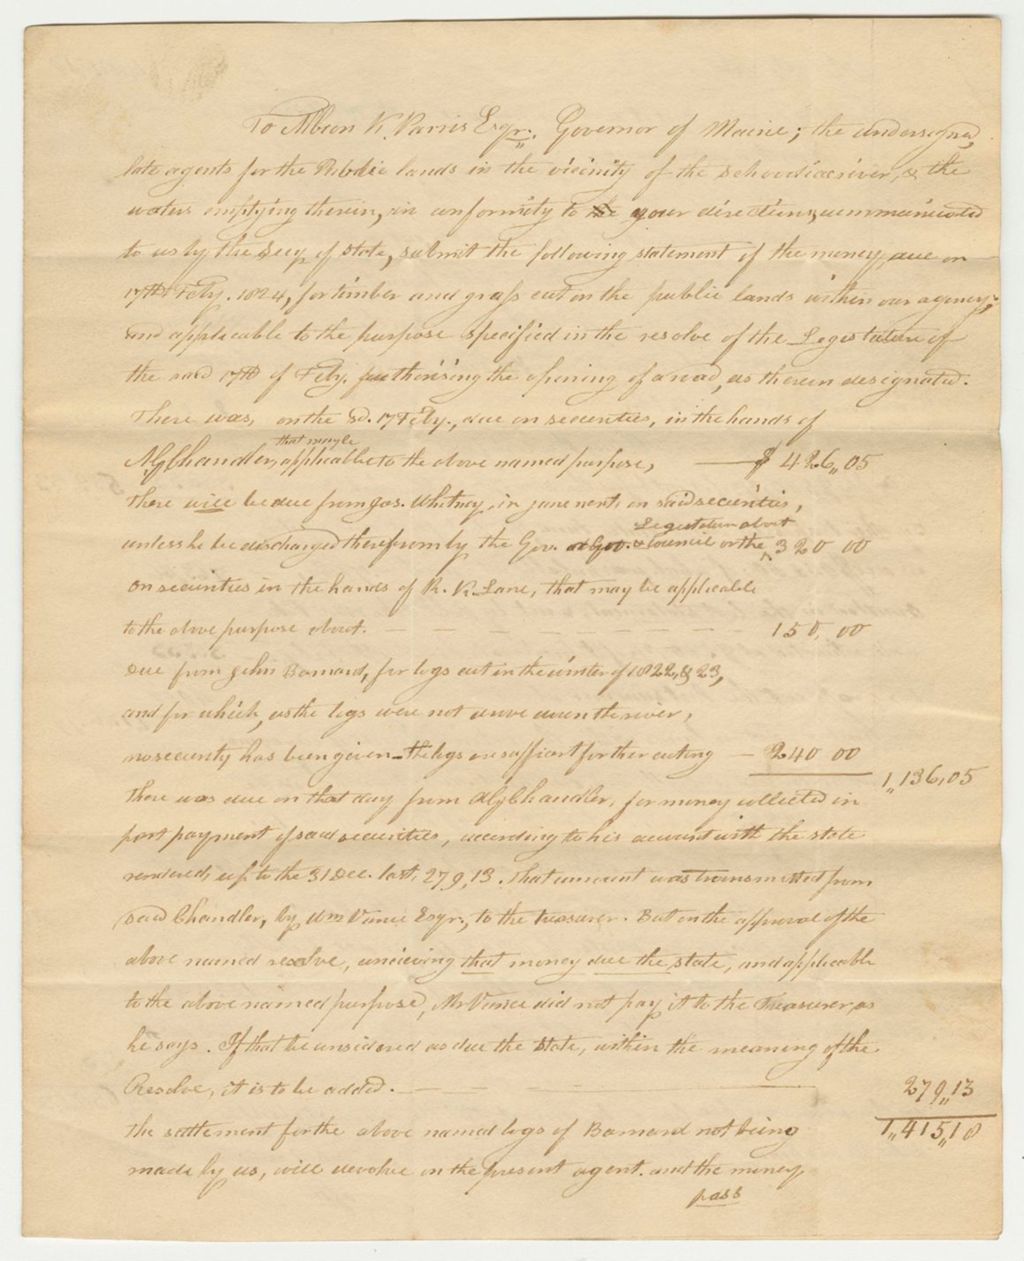 To Albion K. Parris Esqr. Governor of Maine; the undersigned,
late agents for the Public lands in the vicinity of the Schoodic river, & the
waters emptying therein, in conformity to your directions, communicated
to us by the Secy. of State, submit the following statement of the money, due on
17th Feby. 1824, for timber and grass cut on the public lands within our agency,
and applicable to the purpose specified in the resolve of the Legislature of
the said 17th of Feby. authorising the opening of a road, as therein designated.
There was, on the sd. 17 Feby., due on securities, in the hands of
that may be
Chandler, applicable to the above named purpose, — $ 426,,05
there will be due from Jas. Whitney, in June next, on said securities,
Legislature about
unless he be discharged therefrom by the Gov. & Council or the ^ 320 00
on securities in the hands of R. K. Lane, that may be applicable
to the above purpose about. — — — — — — — — 150,00
Due from John Barnard, for logs cut in the winter of 1822, & 23,
and for which, as the logs were not drove down the river,
no security has been given – the logs are sufficient for their cutting — 240 00
1,,136,05
There was due on that day from Chandler, for money collected in
part payment of said securities, according to his account with the state
rendered, up to the 31 Dec. last, 279,13. That amount was transmitted from
said Chandler, by Wm Vance Esqr., to the treasurer. But on the approval of the
above named resolve, conceiving that money due the state, and applicable
to the above named purpose, Mr Vance did not pay it to the Treasurer, as
he says. If that be considered as due the State, within the meaning of the
Resolve, it is to be added. — — — 279,,13
1,,415,,18
the settlement for the above named logs of Barnard not being
made by us, will devolve on the present agent. and the money
pass